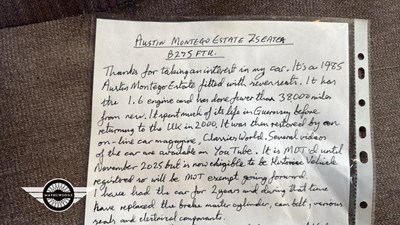 AUSTIN MONTEGO ESTATE 7SEATER
B275FTK.
Thanks for taking an interest in my car. It's a 1985
Austin Montego Estate fitted with seven seats. It has
the 1.6 engine and has done fewer than 38,000 miles
from new. It spent much of its life in Guernsey before
returning to the UK in 2000. It was then restored by an
on-line car magazine, Classics World. Several videos
of the car are available on YouTube. It is MOTd until
November 2025 but is now eligible to be Historic Vehicle
registered so will be MOT exempt going forward.
I have had the car for 2 years and during that time
have replaced the brake master cylinder, cam belt, various
seals and electrical components.